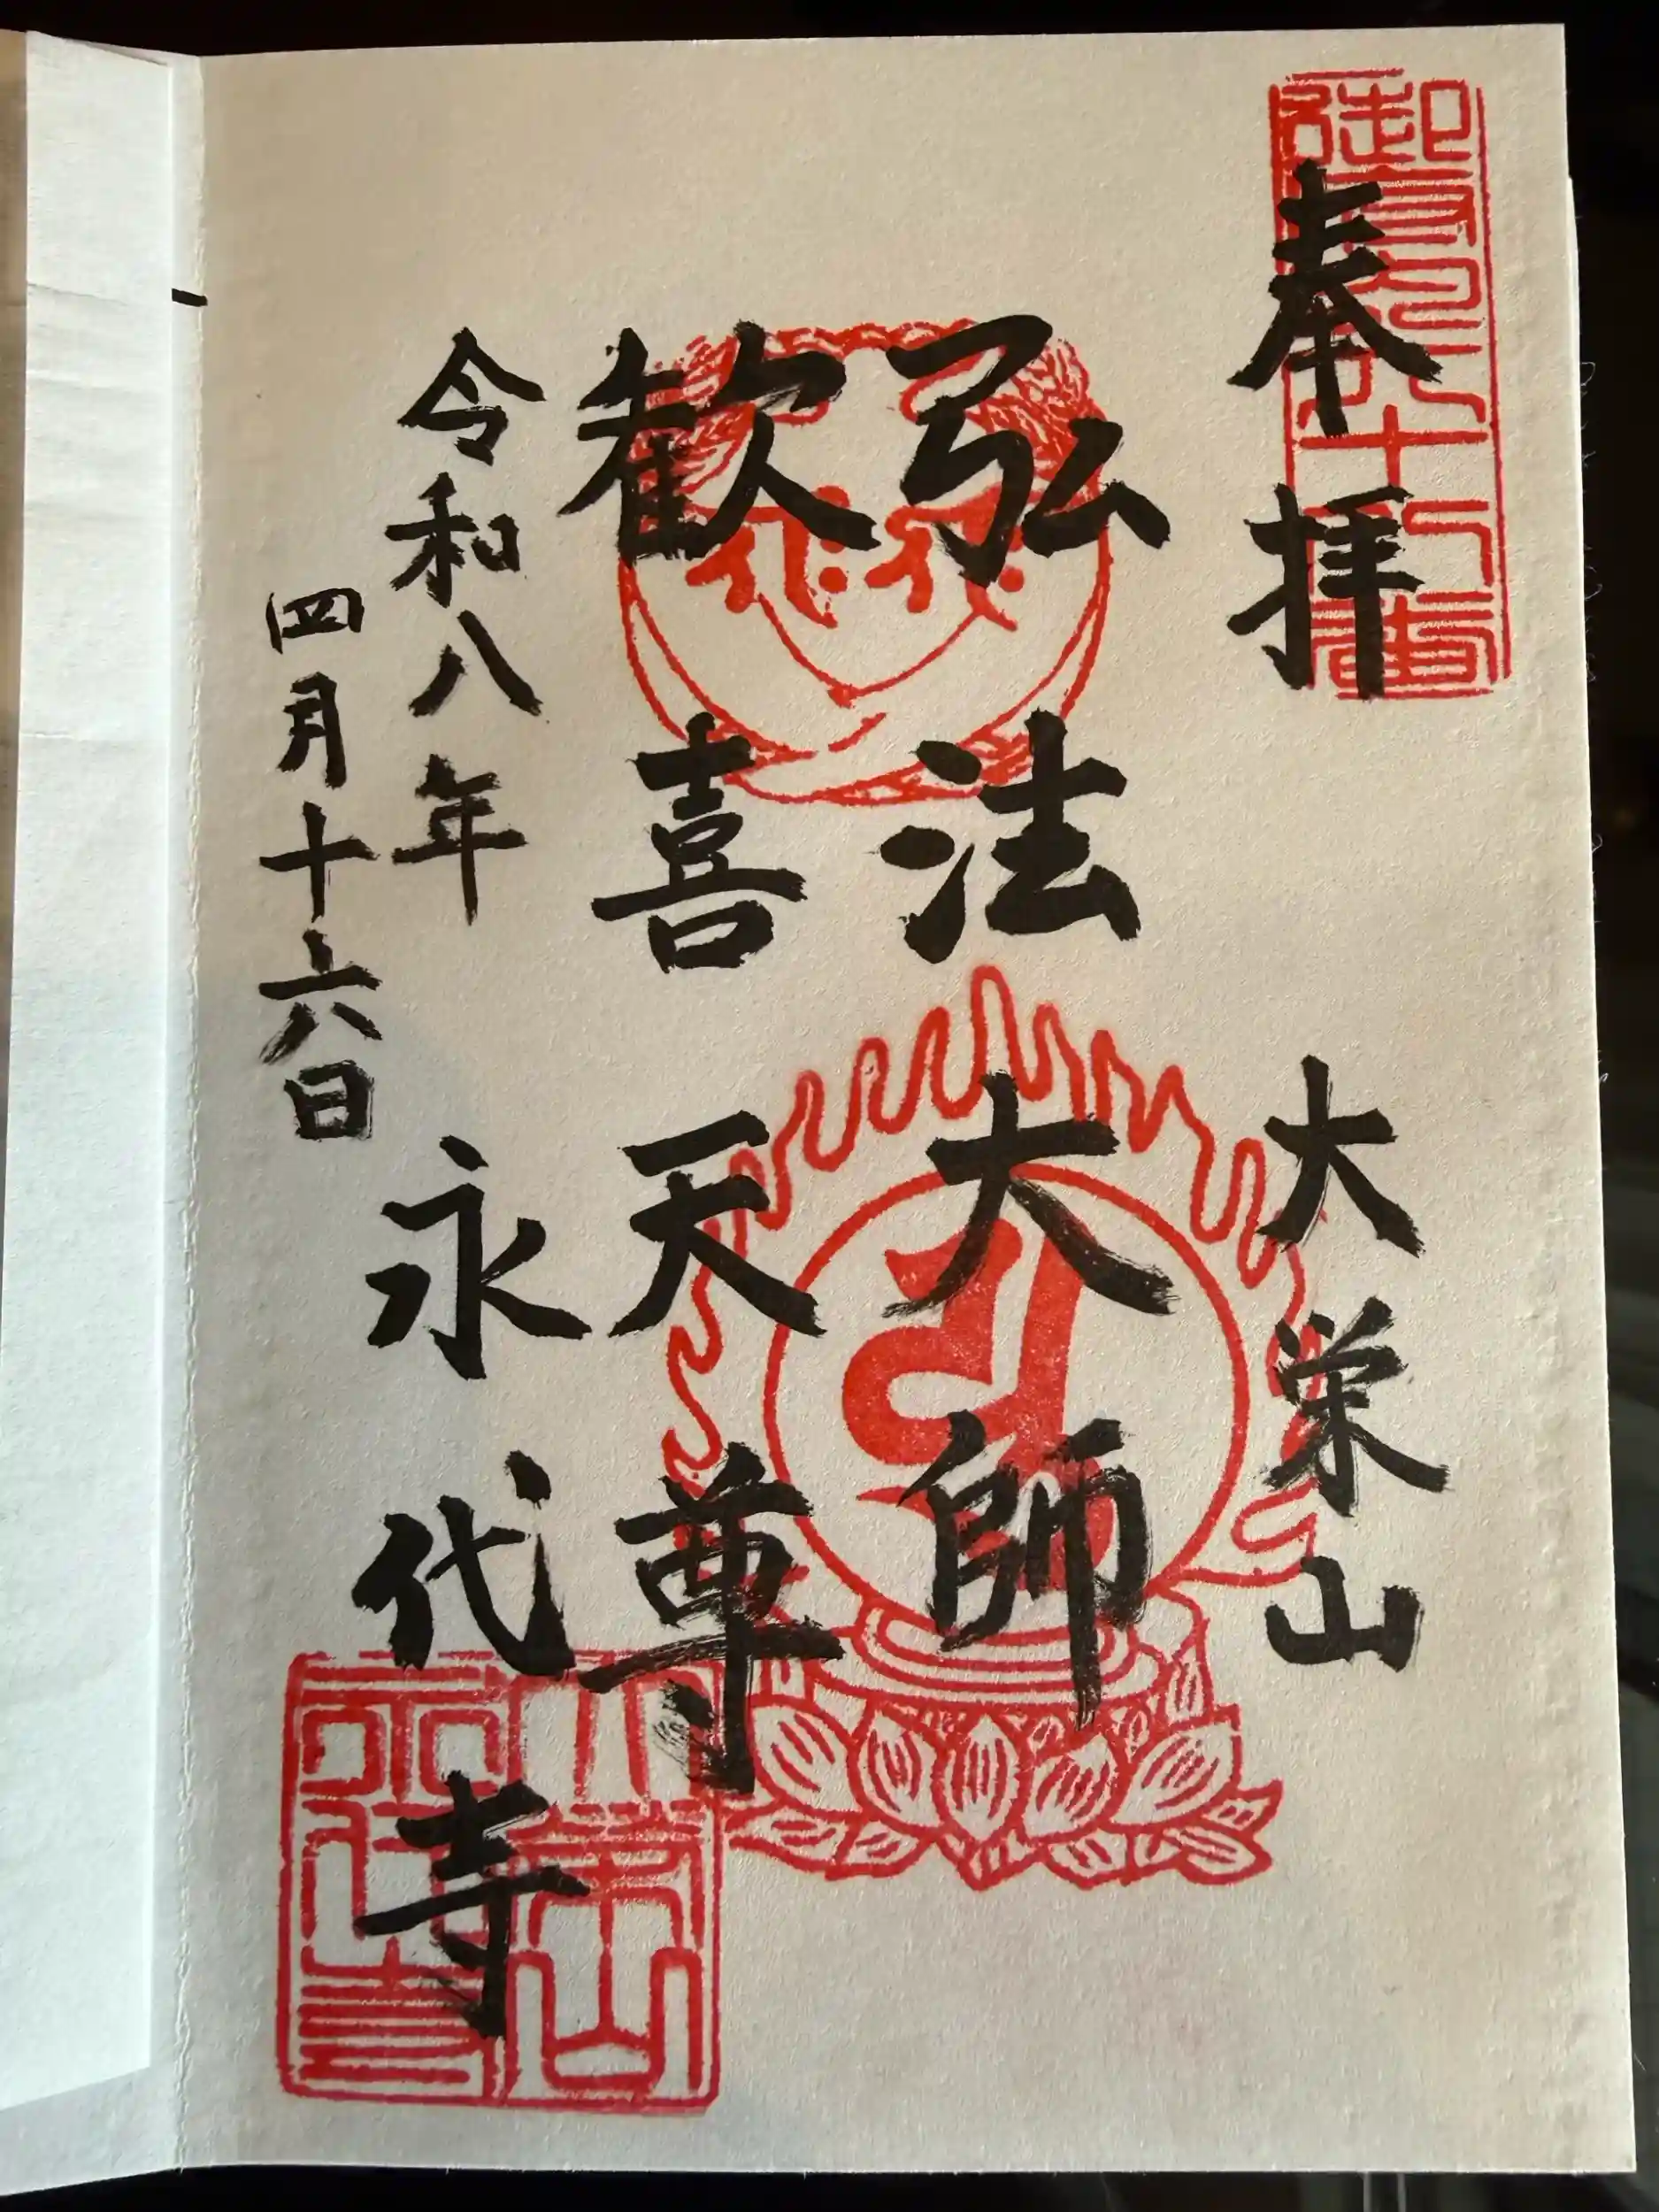 奉拝
大栄山
弘法大師
歓喜天尊
令和八年
四月十六日
永代寺